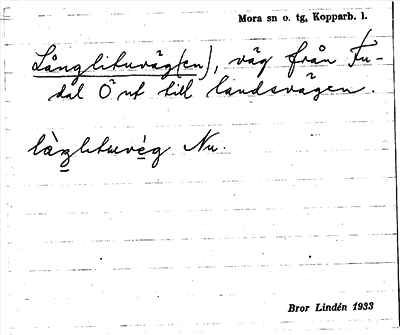 Mora sn o. tg, Kopparb. l.
Långlituväg(en), väg från Fu-
dal Ö ut till landsvägen.
làŋlituvèg Nu.
Bror Lindén 1933